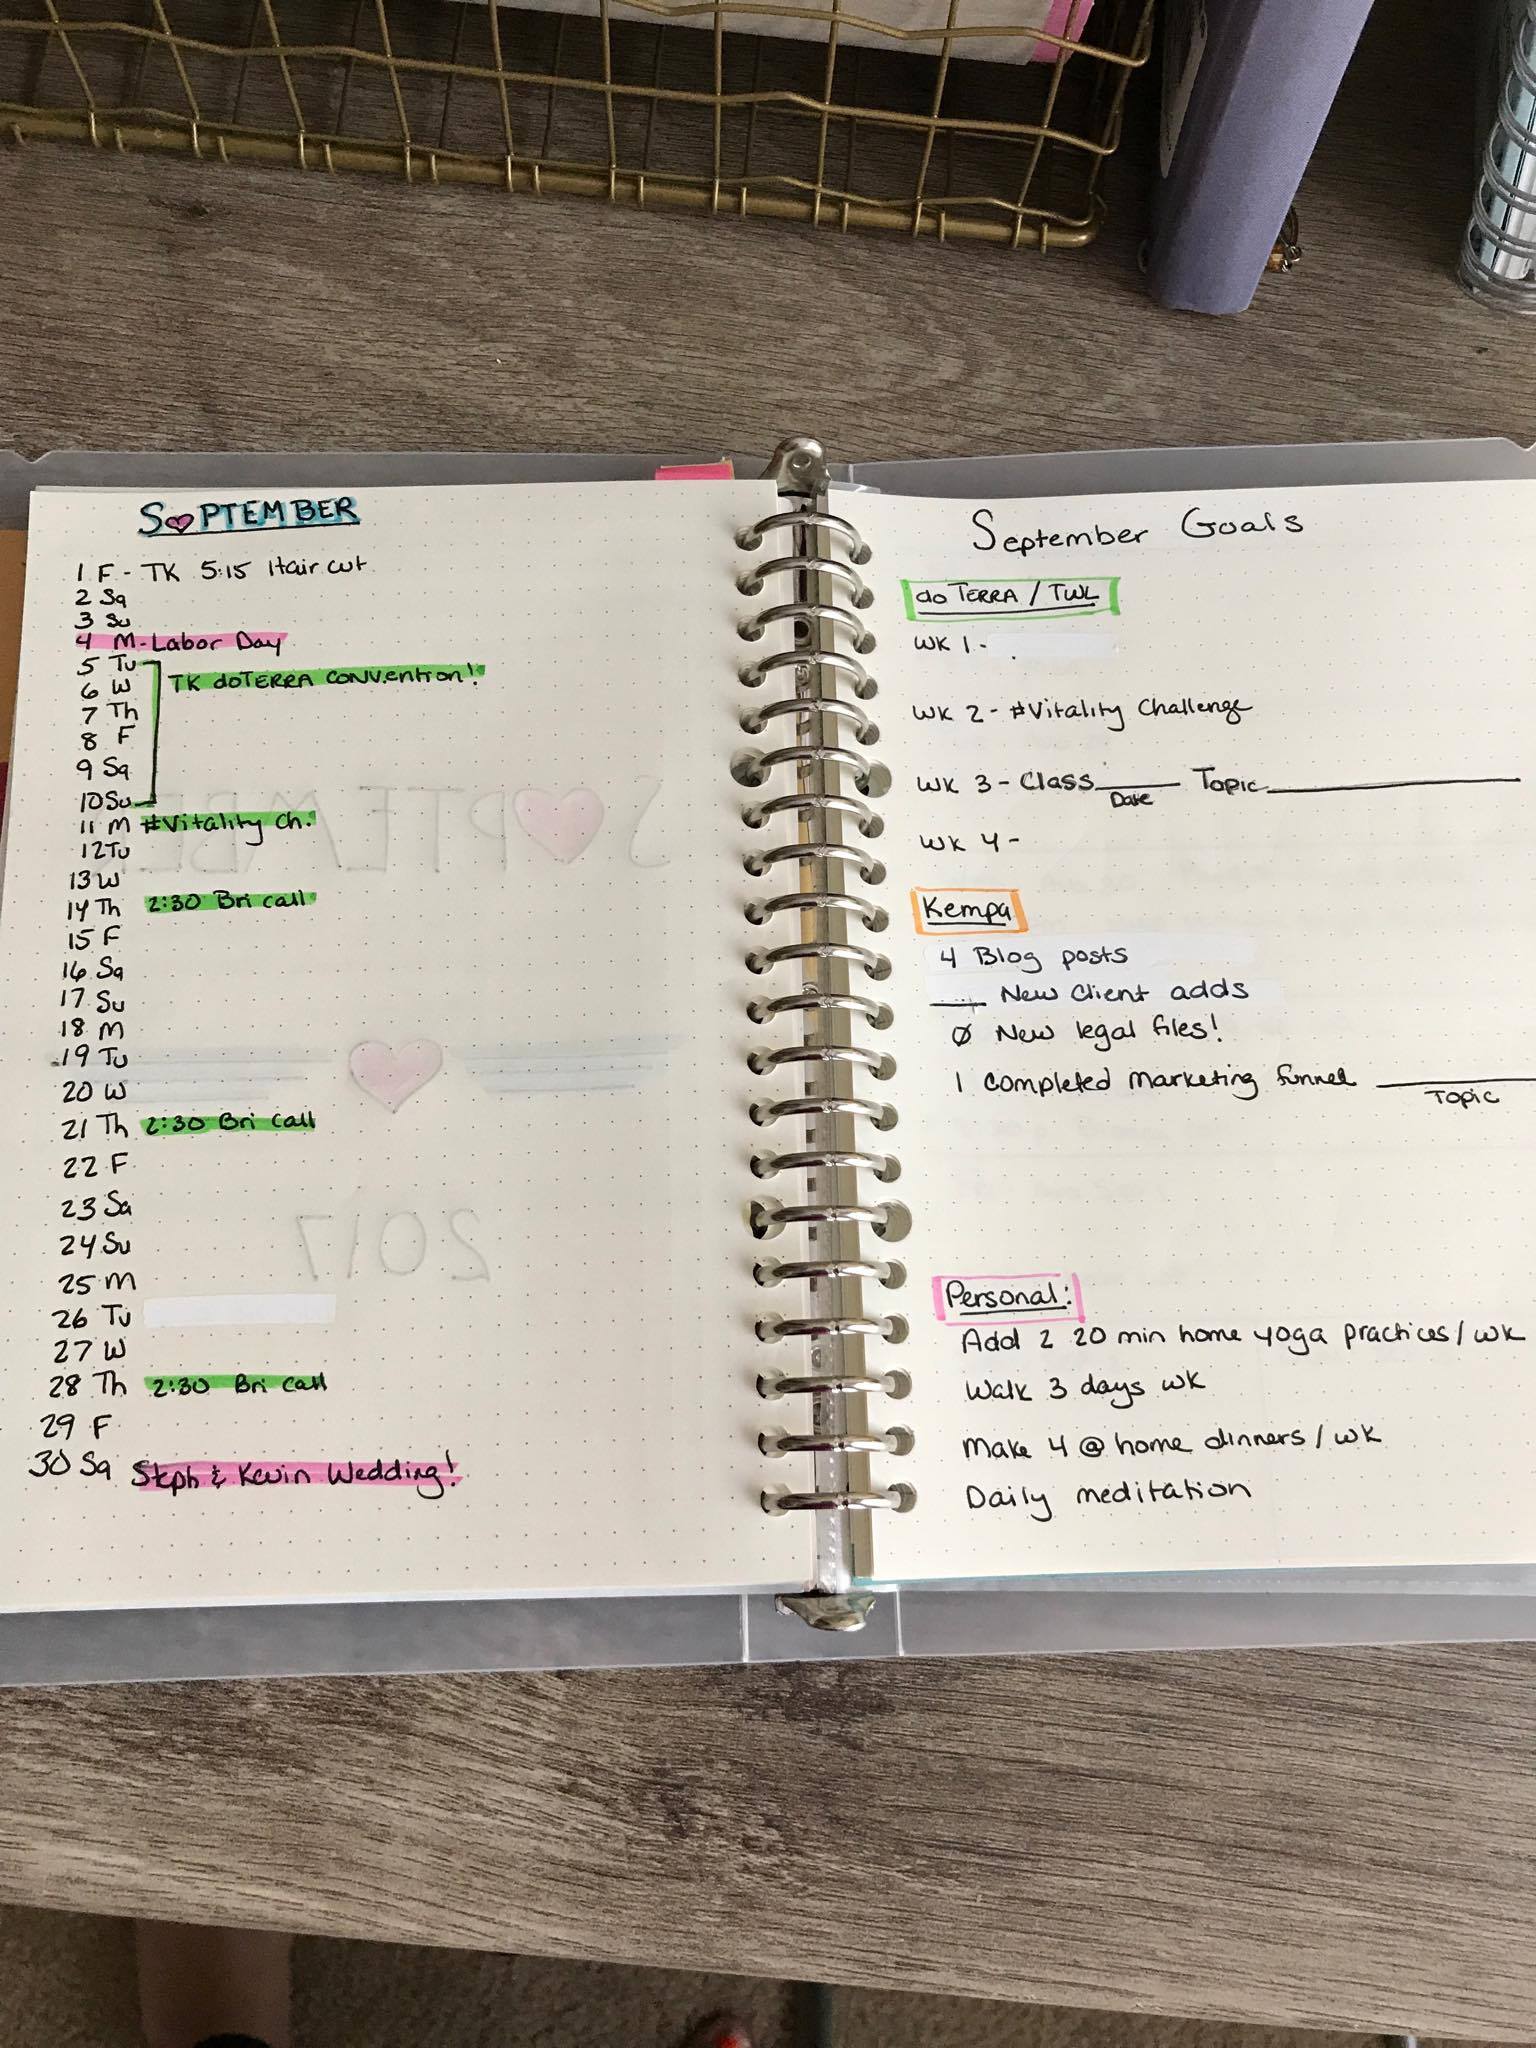 SEPTEMBER
1 F - TK 5:15 Haircut
2 Sa
3 Su
4 M - Labor Day
5 Tu
TK doTERRA convention!
6 W
7 Th
8 F
9 Sa
10 Su
11 M #Vitality Ch.
12 Tu
13 W
14 Th 2:30 Bri call
15 F
16 Sa
17 Su
18 M
19 Tu
20 W
21 Th 2:30 Bri call
22 F
23 Sa
24 Su
25 M
26 Tu
27 W
28 Th 2:30 Bri call
29 F
30 Sa Steph & Kevin Wedding!
SEPTEMBER
2017
September Goals
doTERRA / TWL
WK 1 -
WK 2 - #Vitality Challenge
WK 3 - Class____ Topic____
Date
WK 4 -
Kempa
4 Blog posts
____ New client adds
Ø New legal files!
1 completed marketing funnel ____
Topic
Personal:
Add 2 20 min home yoga practices / wk
Walk 3 days wk
Make 4 @ home dinners / wk
Daily meditation